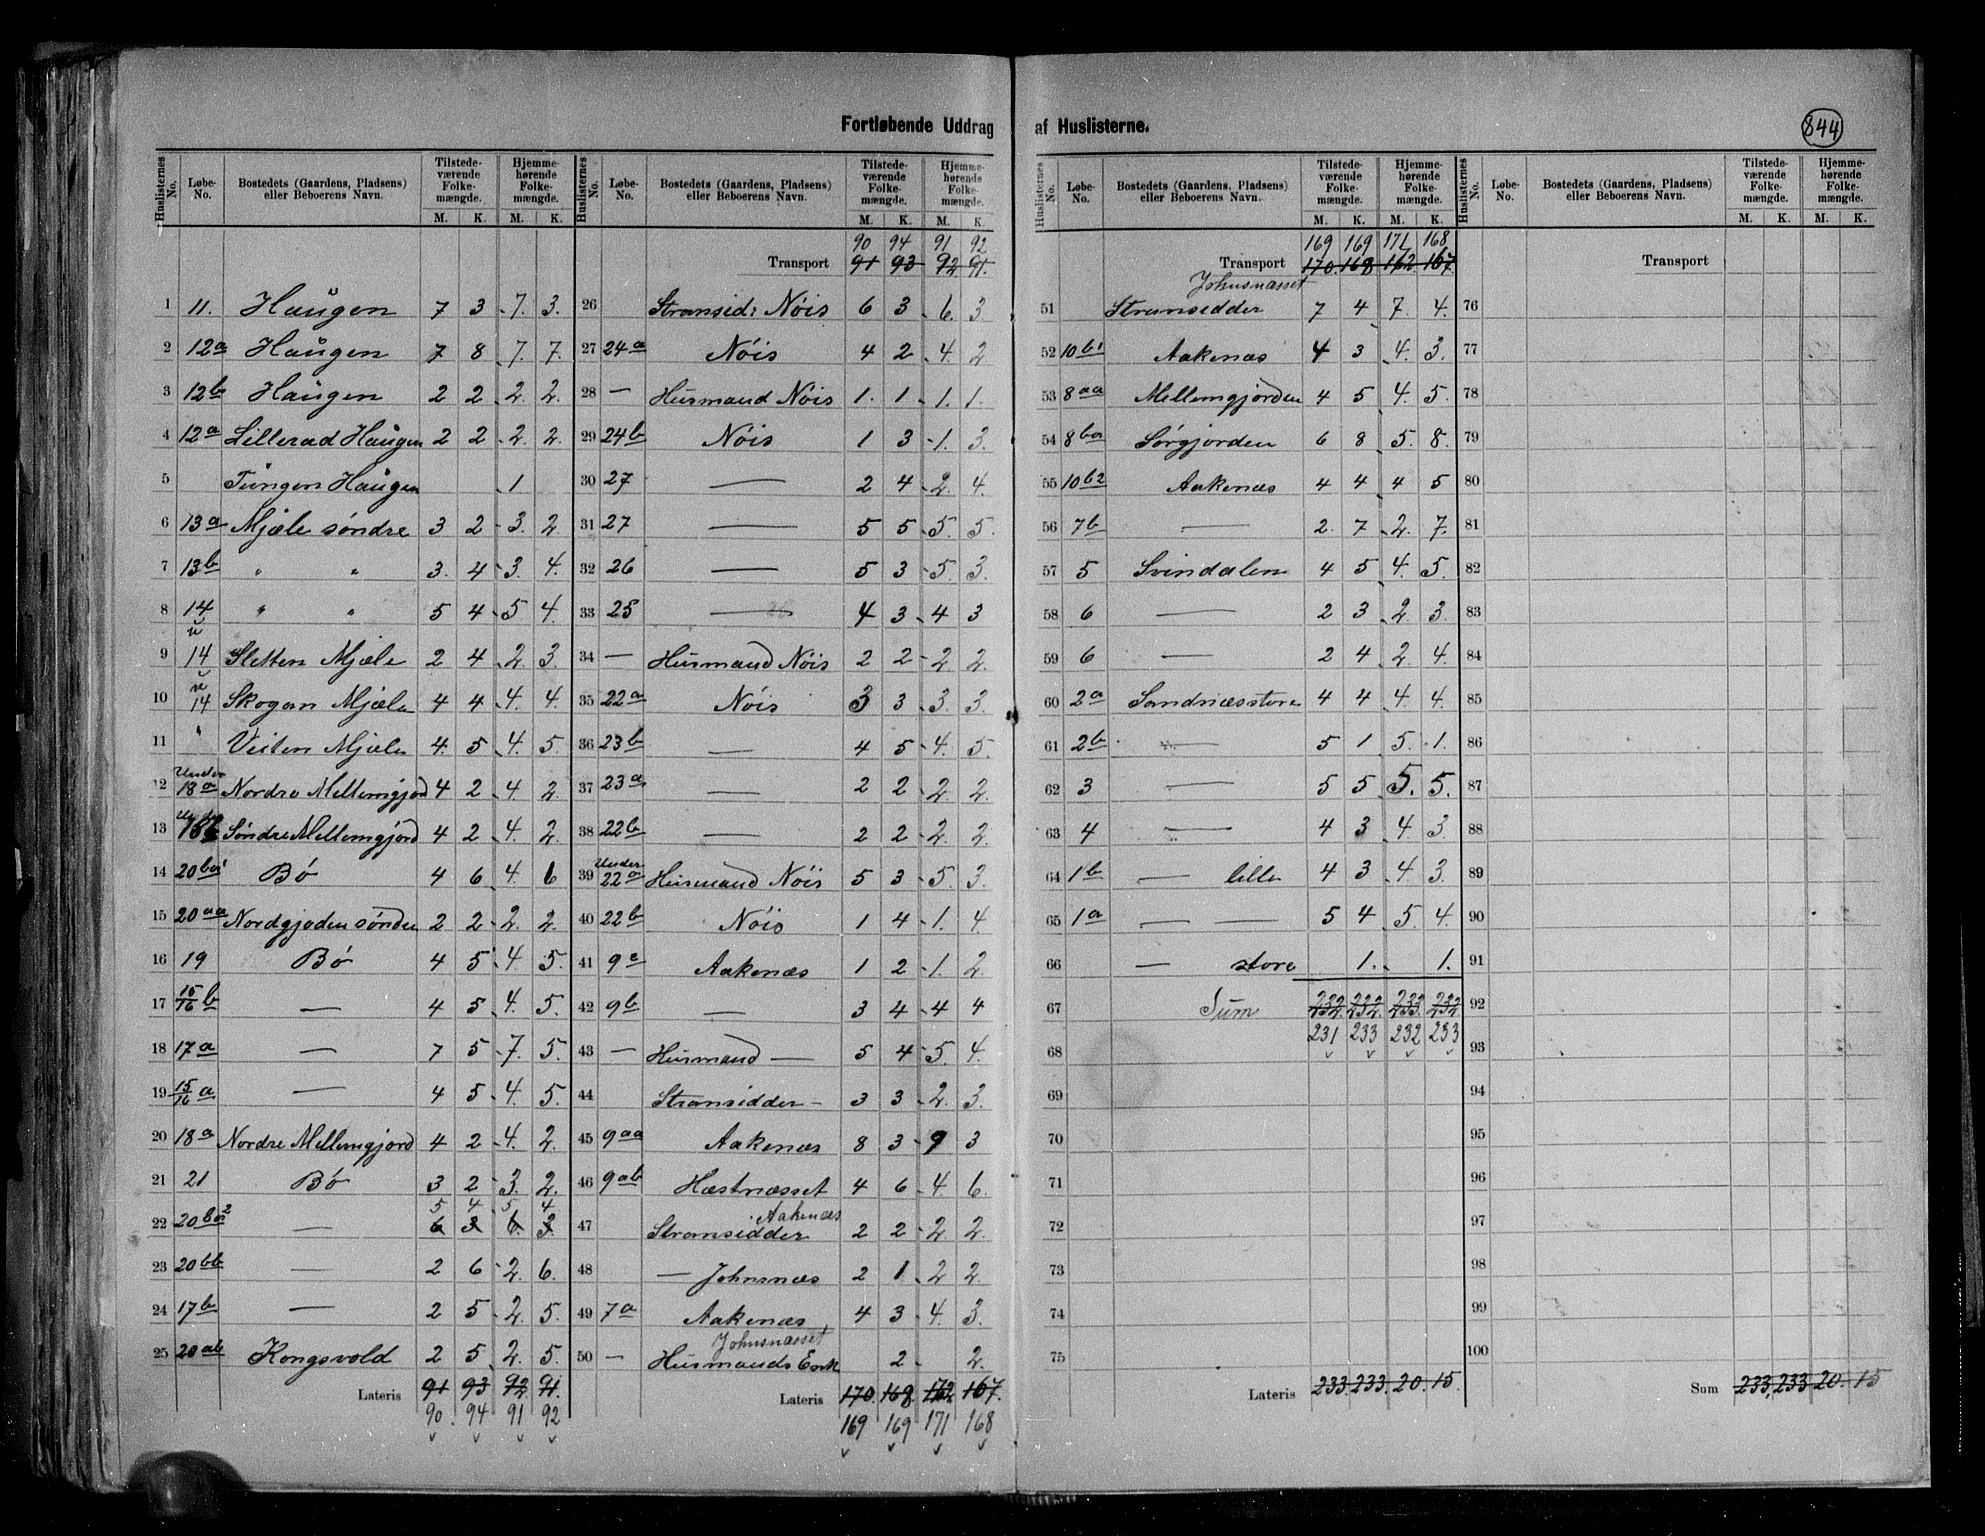 Fortløbende Uddrag af Huslisterne.
844
Huslisternes No. | Løbe-No. | Bostedets (Gaardens, Pladsens) eller Beboerens Navn. | Tilstedeværende Folkemængde. M. K. | Hjemmehørende Folkemængde. M. K.
1 11. Haugen 7 3 7. 3.
2 12a Haugen 7 8 7. 7.
3 12b Haugen 2 2 2. 2.
4 12a Lillerad Haugen 2 2 2. 2.
5 Tungen Haugen 1
6 13a Mjæle søndre 3 2 3. 2
7 13b " " 3. 4 3. 4.
8 14 " " 5 4 5 4.
9 u 14 Sletten Mjæle 2 4 2. 3.
10 u 14 Skogan Mjæle 4 4 4. 4.
11 " Veiten Mjæle 4. 5 4. 5.
12 Under 18a Nordre Mellemgjord 4 2 4. 2.
13 Under 18b Søndre Mellemgjord 4 2 4. 2
14 20ba1 Bø 4 6 4. 6
15 20aa Nordgjorden søndre 2 2 2. 2.
16 19 Bø 4 5 4. 5.
17 15/16 b — 4 5 4. 5.
18 17a — 7 5 7. 5.
19 15/16 a — 4 5 4. 5.
20 18a Nordre Mellemgjord 4 2 4. 2.
21 21 Bø 3 2 3. 2.
5 4 5 4
22 20ba2 — 6 3 6. 3
23 20bb — 2 6 2. 6.
24 17b — 2 5 2. 5.
25 20ab Kongsvold 2 5 2. 5.
Lateris 91 93 92 91.
90. 94 91 92
Huslisternes No. | Løbe-No. | Bostedets (Gaardens, Pladsens) eller Beboerens Navn. | Tilstedeværende Folkemængde. M. K. | Hjemmehørende Folkemængde. M. K.
90 94 91 92
Transport 91 93 92 91.
26 Stransid: Nöis 6 3 6. 3
27 24a Nöis 4 2 4. 2
28 — Husmand Nöis 1. 1 1. 1.
29 24b Nöis 1 3 1. 3.
30 27 — 2 4 2. 4.
31 27 — 5 5 5. 5.
32 26 — 5 3 5. 3.
33 25 — 4 3 4 3
34 — Husmand Nöis 2 2 2 2.
35 22a Nöis 3 3 3. 3.
36 23b — 4 5 4. 5
37 23a — 2 2 2. 2.
38 22b — 2 2 2. 2.
39 Under 22a Husmand Nöis 5 3 5. 3.
40 22b Nöis 1 4 1. 4
41 9c Aakenæs 1 2 1. 2.
42 9b — 3 4 4 4
43 — Husmand — 5 4 5 4.
44 Stransidder — 3 3 2. 3.
45 9aa Aakenæs 8 3 9 3
46 9ab Hæstnæsset 4 6 4. 6.
Aakenæs
47 Stransidder 2 2 2 2.
48 — Johnsnæs 2 1 2 2.
49 7a Aakenæs 4 3 4. 3.
Johnsnæsset
50 — Husmands Enk 2 2.
Lateris 170. 168. 172 167.
169 169 171 168
Huslisternes No. | Løbe-No. | Bostedets (Gaardens, Pladsens) eller Beboerens Navn. | Tilstedeværende Folkemængde. M. K. | Hjemmehørende Folkemængde. M. K.
169 169 171 168
Transport 170. 168 162. 167.
Johnsnæsset
51 Stransidder 7 4 7. 4.
52 10b1 Aakenæs 4 3 4. 3.
53 8aa Mellemgjorden 4 5 4. 5.
54 8ba Sørgjorden 6 8 5 8.
55 10b2 Aakenæs 4 4 4 5
56 7b — 2. 7 2. 7.
57 5 Svindalen 4 5 4. 5.
58 6 — 2 3 2. 3.
59 6 — 2 4 2. 4.
60 2a Sandnæsstore 4 4 4. 4.
61 2b — 5 1 5. 1.
62 3 — 5 5 5. 5.
63 4 — 4 3 4. 3
64 1b — lille 4 3 4 3.
65 1a — — 5 4 5 4.
66 — store 1. 1.
67 Sum 232. 232. 233. 232
68 231 233 232 233
69
70
71
72
73
74
75
Lateris 233. 233. 20. 15.
Huslisternes No. | Løbe-No. | Bostedets (Gaardens, Pladsens) eller Beboerens Navn. | Tilstedeværende Folkemængde. M. K. | Hjemmehørende Folkemængde. M. K.
Transport
76
77
78
79
80
81
82
83
84
85
86
87
88
89
90
91
92
93
94
95
96
97
98
99
100
Sum 233. 233 20. 15